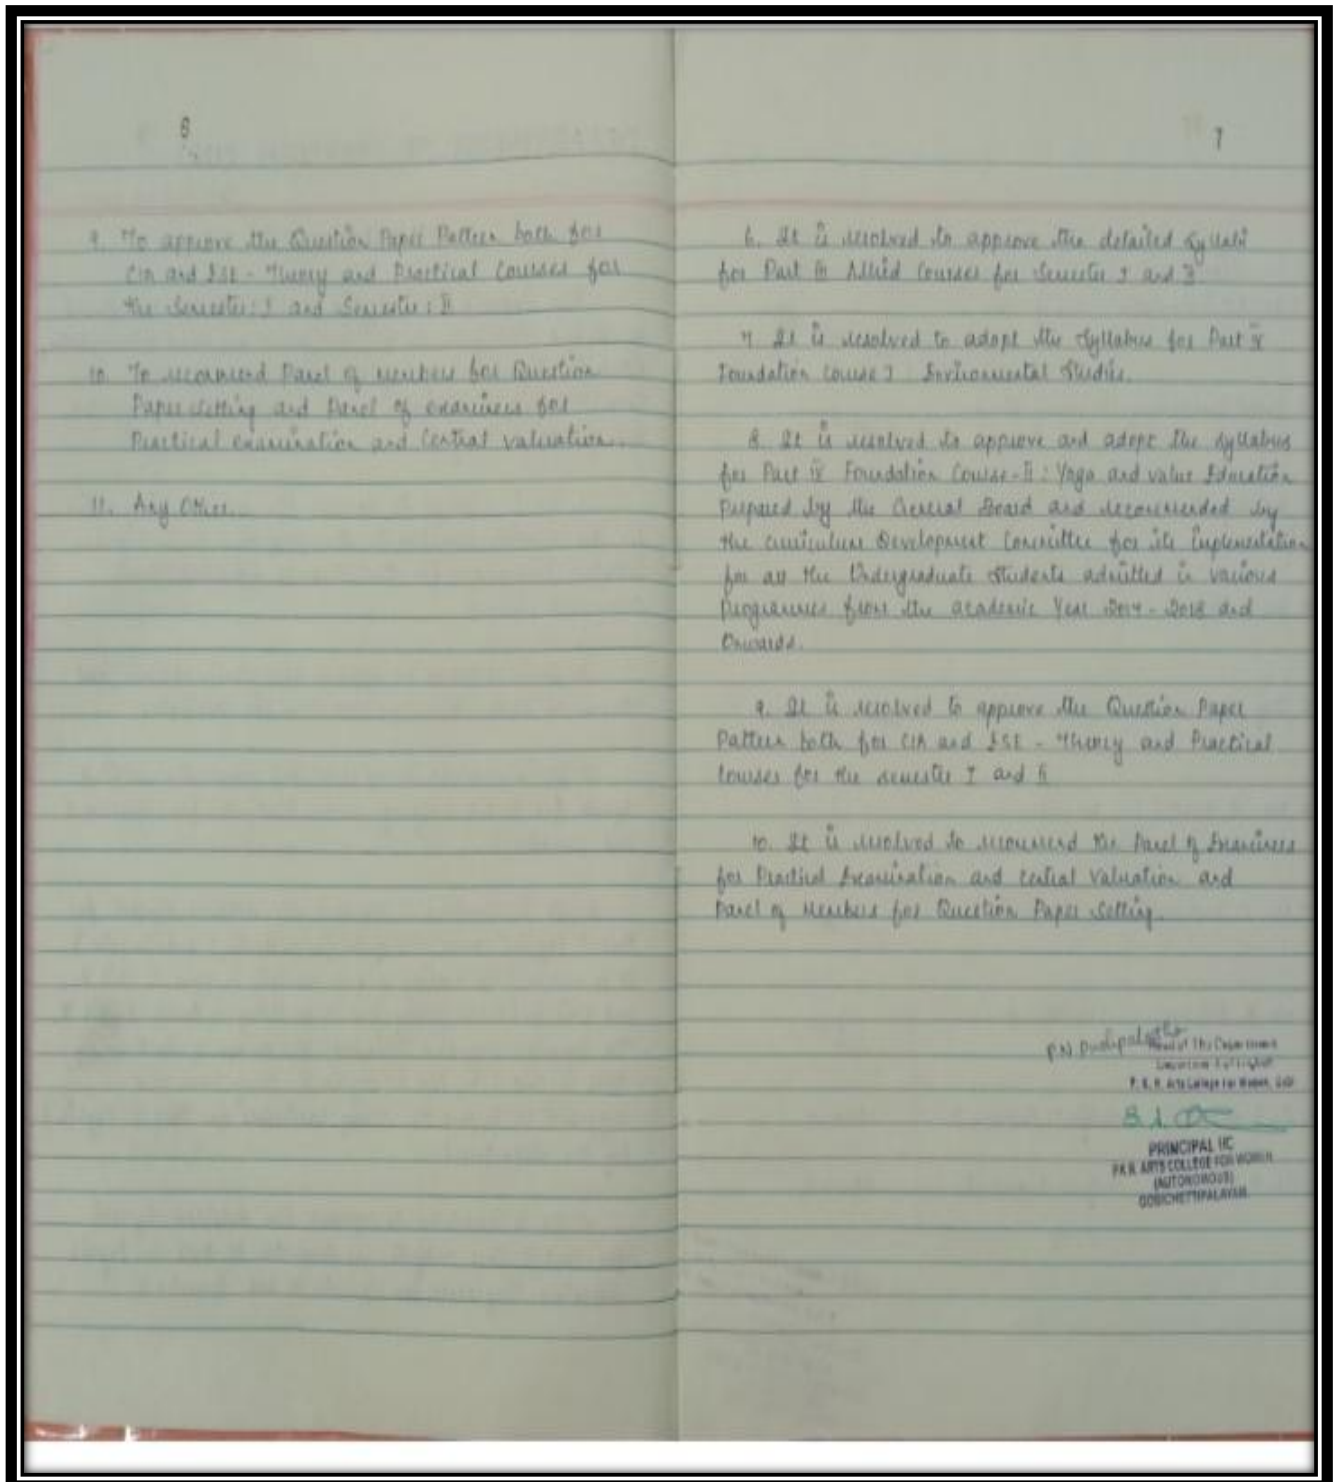 6
9. To approve the Question Paper Pattern both for
CIA and ESE - Theory and Practical Courses for
the Semester: I and Semester: II
10. To recommend Panel of members for Question
Paper setting and Panel of examiners for
Practical examination and Central valuation.
11. Any Other.
7
6. It is resolved to approve the detailed Syllabi
for Part III Allied Courses for Semester I and II
7. It is resolved to adopt the Syllabus for Part IV
Foundation Course I Environmental Studies.
8. It is resolved to approve and adopt the syllabus
for Part IV Foundation Course-II: Yoga and value Education
Prepared by the General Board and recommended by
the curriculum Development Committee for its implementation
for all the Undergraduate Students admitted in various
Programmes from the academic Year - 2018 and
Onwards.
9. It is resolved to approve the Question Paper
Pattern both for CIA and ESE - Theory and Practical
Courses for the semester I and II
10. It is resolved to recommend the Panel of Examiners
for Practical Examination and Central Valuation and
Panel of Members for Question Paper Setting.
P.N
Head of The Department
P. K. R. Arts College For Women, Gobi
PRINCIPAL I/C
P.K.R. ARTS COLLEGE FOR WOMEN
(AUTONOMOUS)
GOBICHETTIPALAYAM.